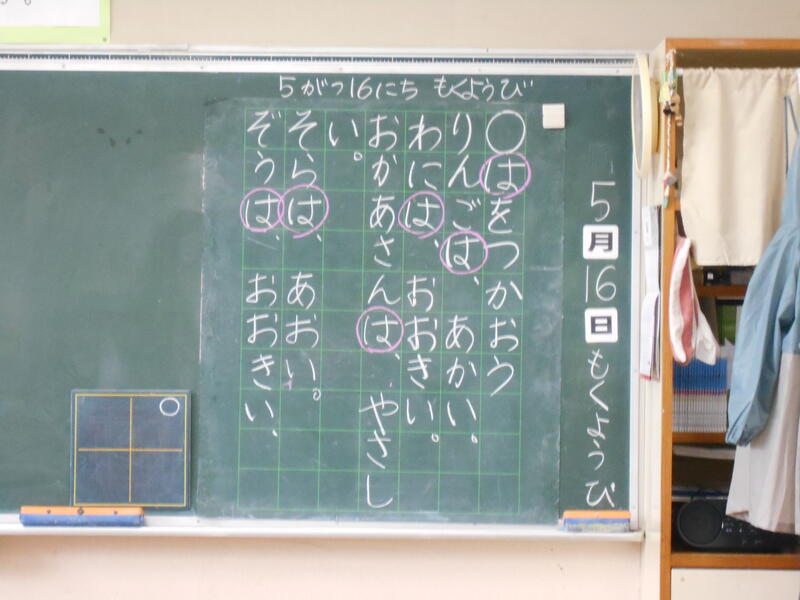 5がつ16にち もくようび
5月16日もくようび
○はをつかおう
りんごは、あかい。
わには、おおきい。
おかあさんは、やさし
い。
そらは、あおい。
ぞうは、おおきい、